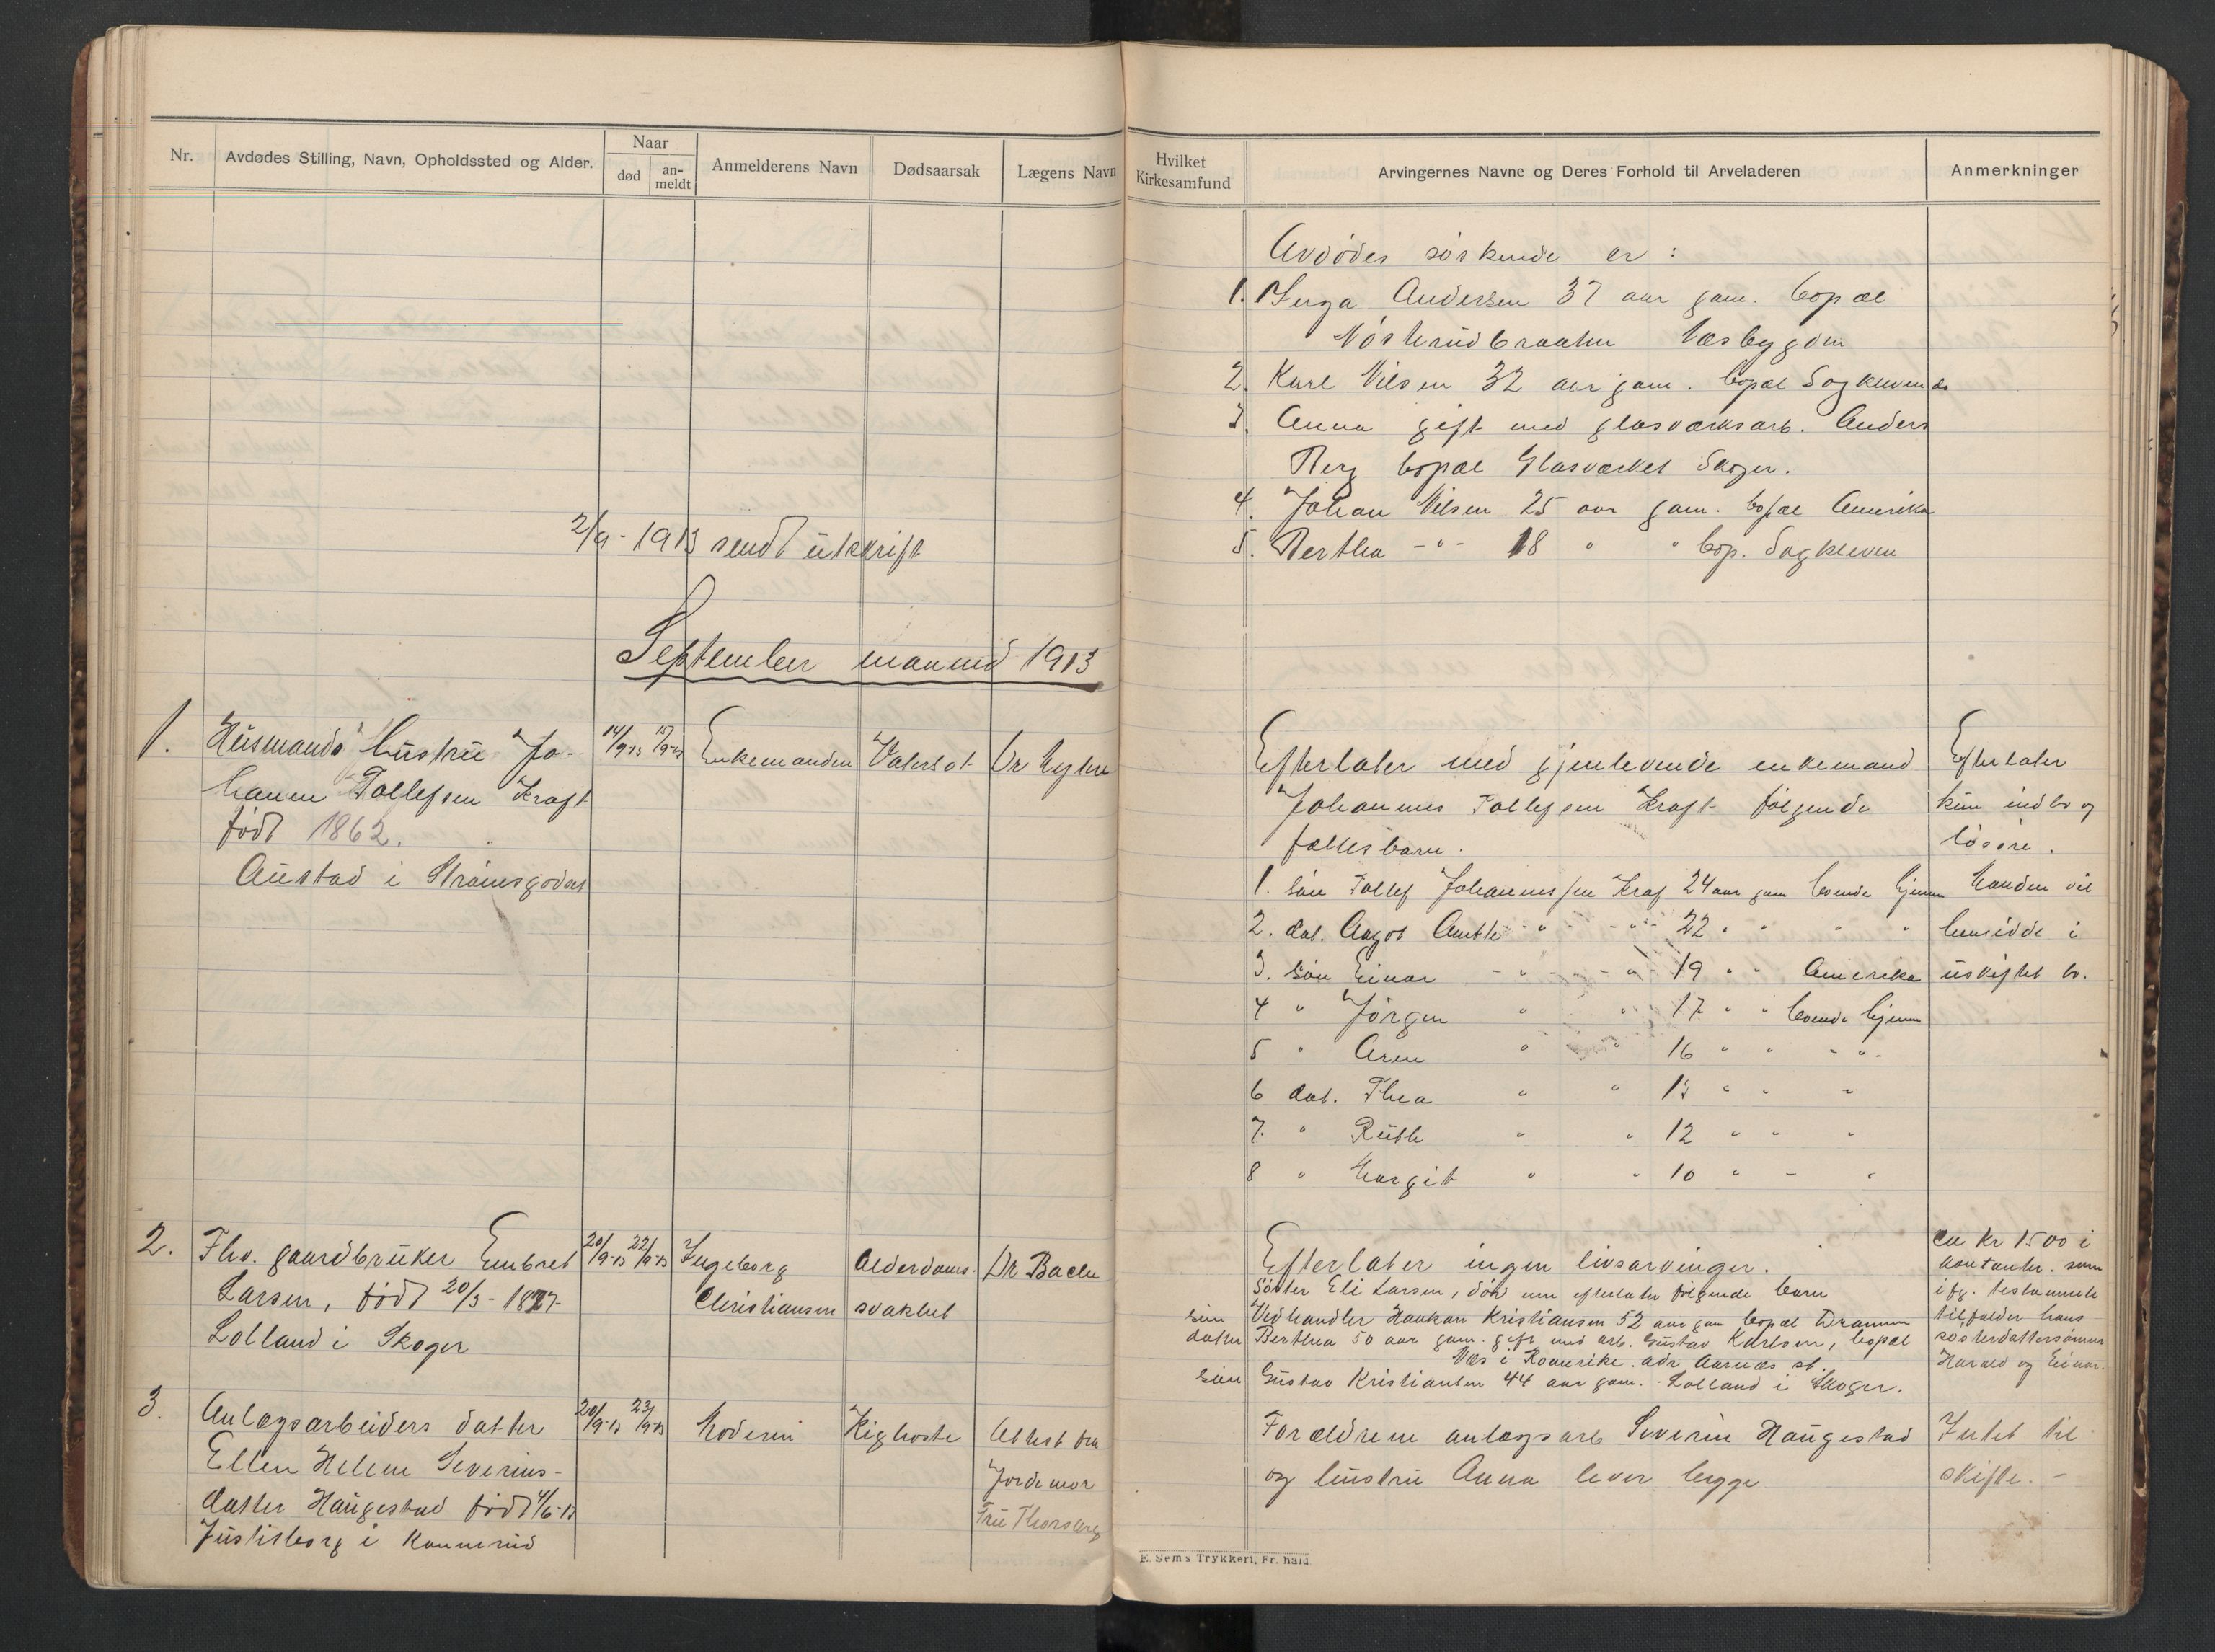 Nr.
Avdødes Stilling, Navn, Opholdssted og Alder.
Naar
død
an-
meldt
Anmelderens Navn
Dødsaarsak
Lægens Navn
2/9-1913 sendt utskrift
September maaned 1913
1.
Husmands hustru Jo-
hanne Tollefsen Kraft
født 1862.
Austad i Strømsgodset
14/9-13
15/9-13
Enkemanden
Vatersot
Dr
2.
Fhv. gaardbruker Embret
Larsen, født 20/3-1827
Lolland i Skoger
20/9-13
22/9-13
Ingeborg
Christiansen
Alderdoms-
svakhet
Dr Bache
3.
Anlægsarbeiders datter
Ellen Helene Severins-
datter Haugestad født 4/6-13
Justisborg i Konnerud
20/9-13
23/9-13
Moderen
Kighoste
Attest fra
Jordemor
Fru Thorsberg
Hvilket
Kirkesamfund
Arvingernes Navne og Deres Forhold til Arveladeren
Anmerkninger
Avdødes søskende er :
1. Inga Andersen 37 aar gam. bopæl
Nøsterudbraaten Væsbygden
2. Karl Nilsen 32 aar gam. bopæl Sagkleven do
3. Anna gift med glasværksarb. Anders
Berg bopæl Glasværket Skoger.
4. Johan Nilsen 25 aar gam. bopæl Amerika
5. Bertha -"- 18 " " bop. Sagkleven
Efterlater med gjenlevende enkemand
Johannes Tollefsen Kraft følgende
fællesbarn.
1. søn Tollef Johannessen Kraf 24 aar gam boende hjemme
2. dat. Aagot Anette " -"- 22 " " " "
3. søn Einar -"- -"- 19 " " Amerika
4 " Jørgen " " 17 " " boende hjemme
5 " Arne " " 16 " " -"-
6 dat. Thea " " 13 " " "
7. " Ruth " " 12 " " "
8 " Margit " " 10 " - "
Efterlater
kun indbo og
løsøre.
Manden vil
hensidde i
uskiftet bo.
Efterlater ingen livsarvinger.
Søster Eli Larsen, død men efterlater følgende barn
søn Vedhandler Haakon Kristiansen 52 aar gam bopæl Drammen
datter Berthea 50 aar gam. gift med arb. Gustav Karlsen, bopæl
Næs i Romerike. adr Aarnæs st.
søn Gustav Kristiansen 44 aar gam. Lolland i Skoger.
ca kr 1500 i
kontanter. som
ifg. testamente
tilfalder hans
søsterdattersønner
Harald og Einar.
Forældrene anlægsarb Severin Haugestad
og hustru Anna lever begge
Intet til
skifte. -
E. Sem's Trykkeri, Fr.hald.